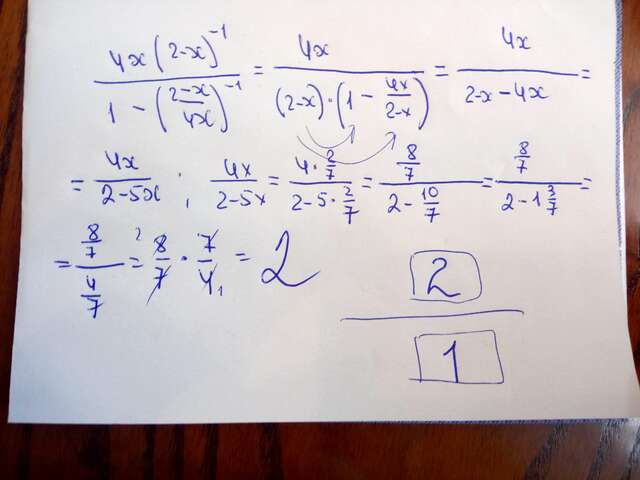 4x(2-x)⁻¹ / (1 - ((2-x)/(4x))⁻¹) = 4x / ((2-x)·(1 - 4x/(2-x))) = 4x / (2-x-4x) =
= 4x/(2-5x) ; 4x/(2-5x) = (4·2/7) / (2-5·2/7) = (8/7) / (2-10/7) = (8/7) / (2-1 3/7) =
= (8/7) / (4/7) = ² 8/7 · 7/4 ₁ = 2
2
1